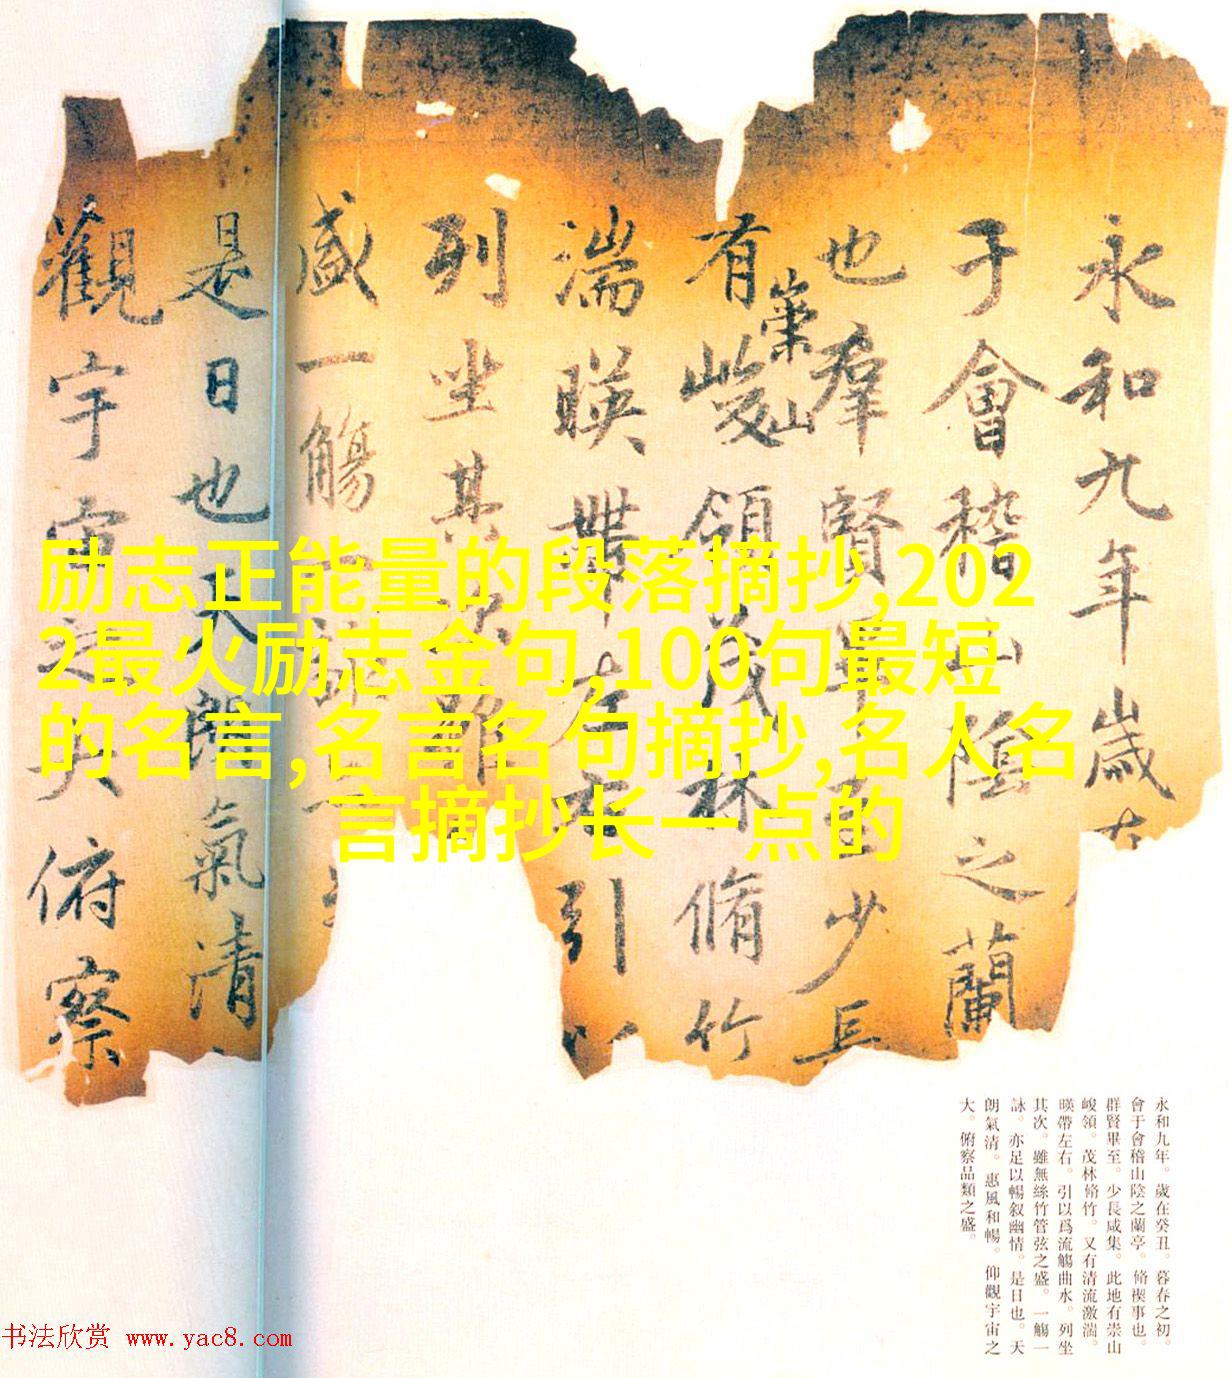 永和九年歲在
于會稽山陰之蘭
也羣賢畢至少長
有崇峻山領茂林脩竹
湍暎帶左右引以
列坐其次雖
盛一觴一詠
是日也天朗氣清
觀宇宙之大俯察
励志正能量的段落摘抄,202
2最火励志金句,100句最短
的名言,名言名句摘抄,名人名
言摘抄长一点的
永和九年。歲在癸丑。暮春之初。
會于會稽山陰之蘭亭。脩禊事也。
群賢畢至。少長咸集。此地有崇山
峻領。茂林脩竹。又有清流激湍。
暎帶左右。引以爲流觴曲水。列坐
其次。雖無絲竹管弦之盛。一觴一
詠。亦足以暢叙幽情。是日也。天
朗氣清。惠風和暢。仰觀宇宙之
大。俯察品類之盛。
书法欣赏 www.yac8.com